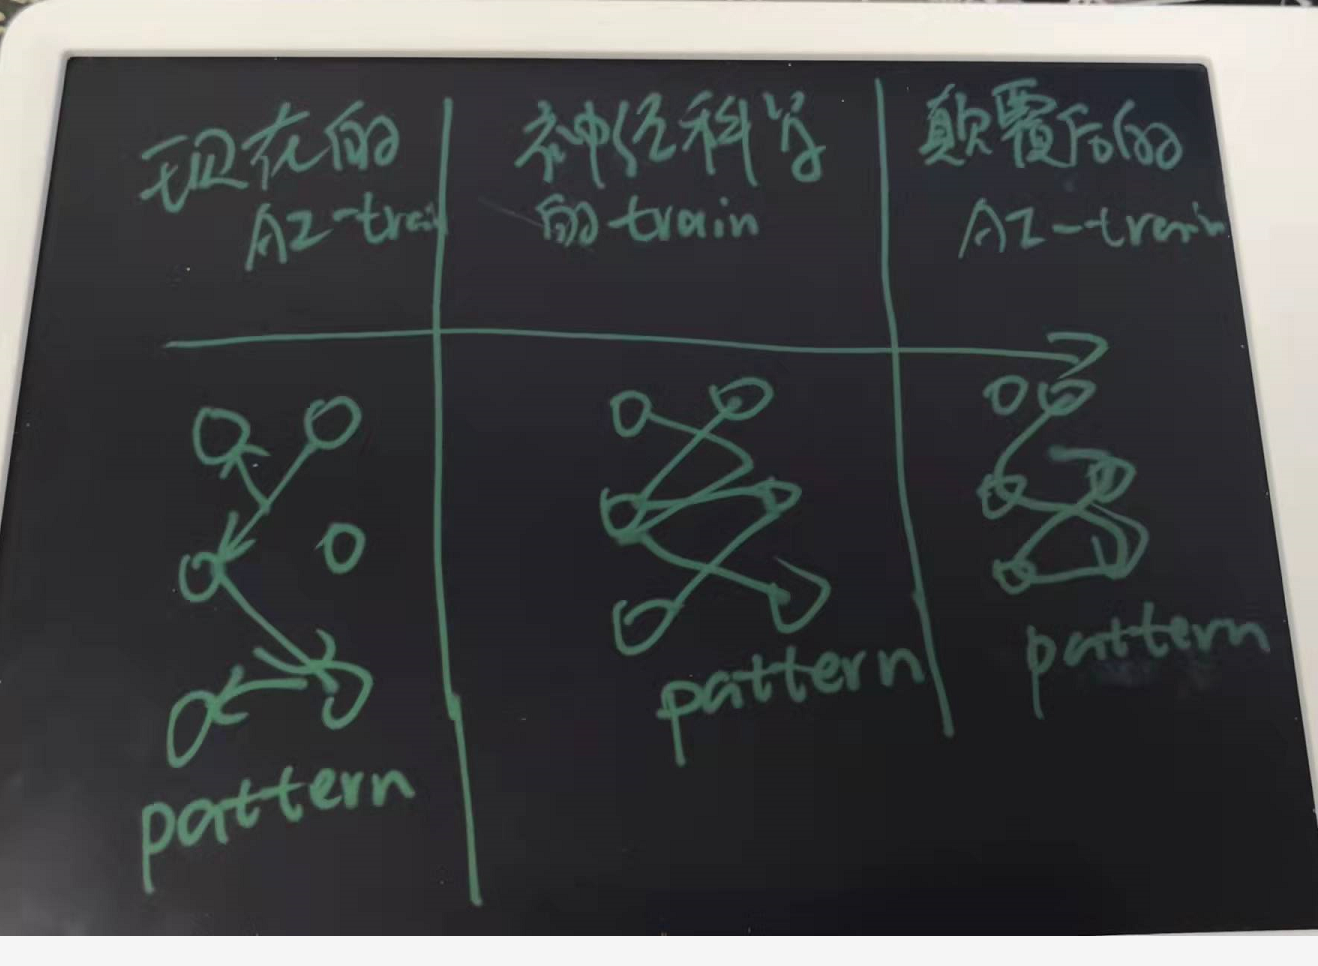 现在的
AI-train
神经科学
的train
颠覆后的
AI-train
pattern
pattern
pattern